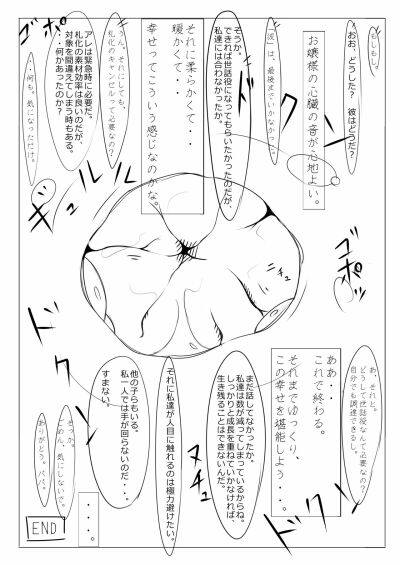 もしもし。
おお、どうした？　彼はどうだ？
お嬢様の心臓の音が心地よい。
「彼」は、最後までいかなかった。
そうか。
できれば世話役になってもらいたかったのだが、
私達には合わなかったか。
それに柔らかくて・・
暖かくて・・・
幸せってこういう感じなのかな。
うん。それにしても、
札化のキャンセルって必要なの？
アレは緊急時に必要だ。
札化の素材効率は良いのだが、
対象を間違えてしまう時もある。
・・・何かあったのか？
・・・何も。気になっただけ。
ゴホ
ギュ
ドクン
ゴポッ
ニチュ
あ、それと。
どうして世話役なんて必要なの？
自分でも調達できるし。
ああ・・
これで終わる。
それまでゆっくり、
この幸せを堪能しよう・・・。
まだ話してなかったか。
私達は数が減ってしまっているからね。
しっかりと成長を重ねていかなければ、
生き残ることはできないんだ。
それに私達が人目に触れるのは極力避けたい。
他の子らもいる。
私一人では手が回らないのだ・・。
すまない。
そっか。
ごめん、気にしないで。
ありがとう。パパ。
・・・。
ドクン
ヌチュ
END